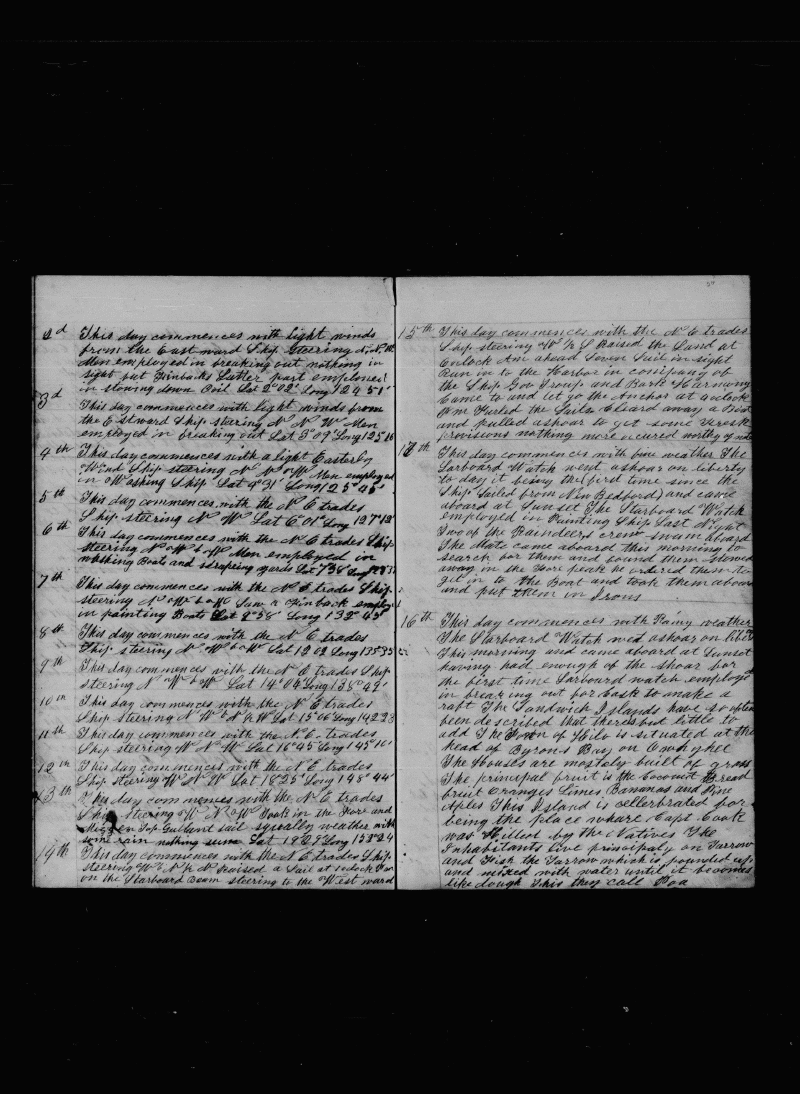 2d This day commences with light winds
from the East ward Ship Steering N, N, W
Men employed in breaking out nothing in
sight but Finbacks Latter part employed
in stowing down Oil Lat 2° 02' Long 124 51'
3d This day commences with light winds from
the E stward Ship stearing N N W Men
employed in breaking out Lat 3° 09' Long 125 16
4th This day commences with a light Easterly
Wind Ship steering N N W Men employed
in Washing Ship Lat 4° 31' Long 125° 45'
5th This day commences with the N E trades
Ship steering N W Lat 6° 01' Long 127° 12'
6th This day commences with the N E trades Ship
steering N W b W Men employed in
washing Boats and scrapeing yards Lat 7 38'
7th This day commences with the N E trades Ship
steering N W b W Saw a Finback employ
in painting Boats Lat 9° 58' Long 132° 45'
8th This day commences with the N E trades
Ship steering N W b W Lat 12 02 Long 135 35
9th This day commences with the N E trades Ship
steering N W b W Lat 14° 04 Long 138° 49'
10th This day commences with the N E trades
Ship steering N W Lat 15° 06' Long 142 23
11th This day commences with the N E. trades
Ship steering W N W Lat 16° 45' Long 145° 10'
12th This day commences with the N E trades
Ship steering W N W Lat 18 25' Long 148° 44'
13th This day commences with the N E trades
Ship steering W N W Took in the Fore and
Mizzen Top Gallant sail squally weather with
some rain nothing seen Lat 19 29 Long 153° 24
14th This day commences with the N E trades Ship
steering W Raised a Sail at
on the Starboard Beam steering to the West ward
15th This day commences with the N E trades
Ship steering W Raised the Land at
6 oclock Am ahead Seven Sail in sight
Run in to the Harbor in company of
the Ship Gov Troup and Bark Harmony
Came to and let go the Anchor at 4 oclock
Pm Furled the Sails Cleard away a Boat
and pulled ashoar to get some Fresh
provisions nothing more occured worthy of note
17th This day commences with fine weather The
Larboard Watch went ashoar on liberty
to day it being the first time since the
Ship Sailed from New Bedford and came
aboard at Sunset The Starboard Watch
employed in Painting Ship Last Night
Two of the Raindeers crew swum aboard
The Mate came aboard this morning to
search for them and found them stowed
away in the Fore peak he ordered them to
get in to the Boat and took them aboard
and put them in Irons
16th This day commences with Rainy weather
The Starboard Watch went ashoar on liberty
This morning and came aboard at Sunset
having had enough of the shoar for
the first time Larboard watch employed
in breaking out for Cask to make a
raft The Sandwich Islands have so often
been described that theres but little to
add The Town of Hilo is situated at the
head of Byrons Bay on Owhyhee
The Houses are mostely built of grass
The principal fruit is the Coconut Bread
fruit Oranges Limes Bananas and Pine
Aples This Island is cellerbrated for
being the place whare Capt Cook
was Killed by the Natives The
Inhabitants live principaly on Tarrow
and Fish the Tarrow which is pounded up
and mixed with water until it becomes
like dough This they call Poa